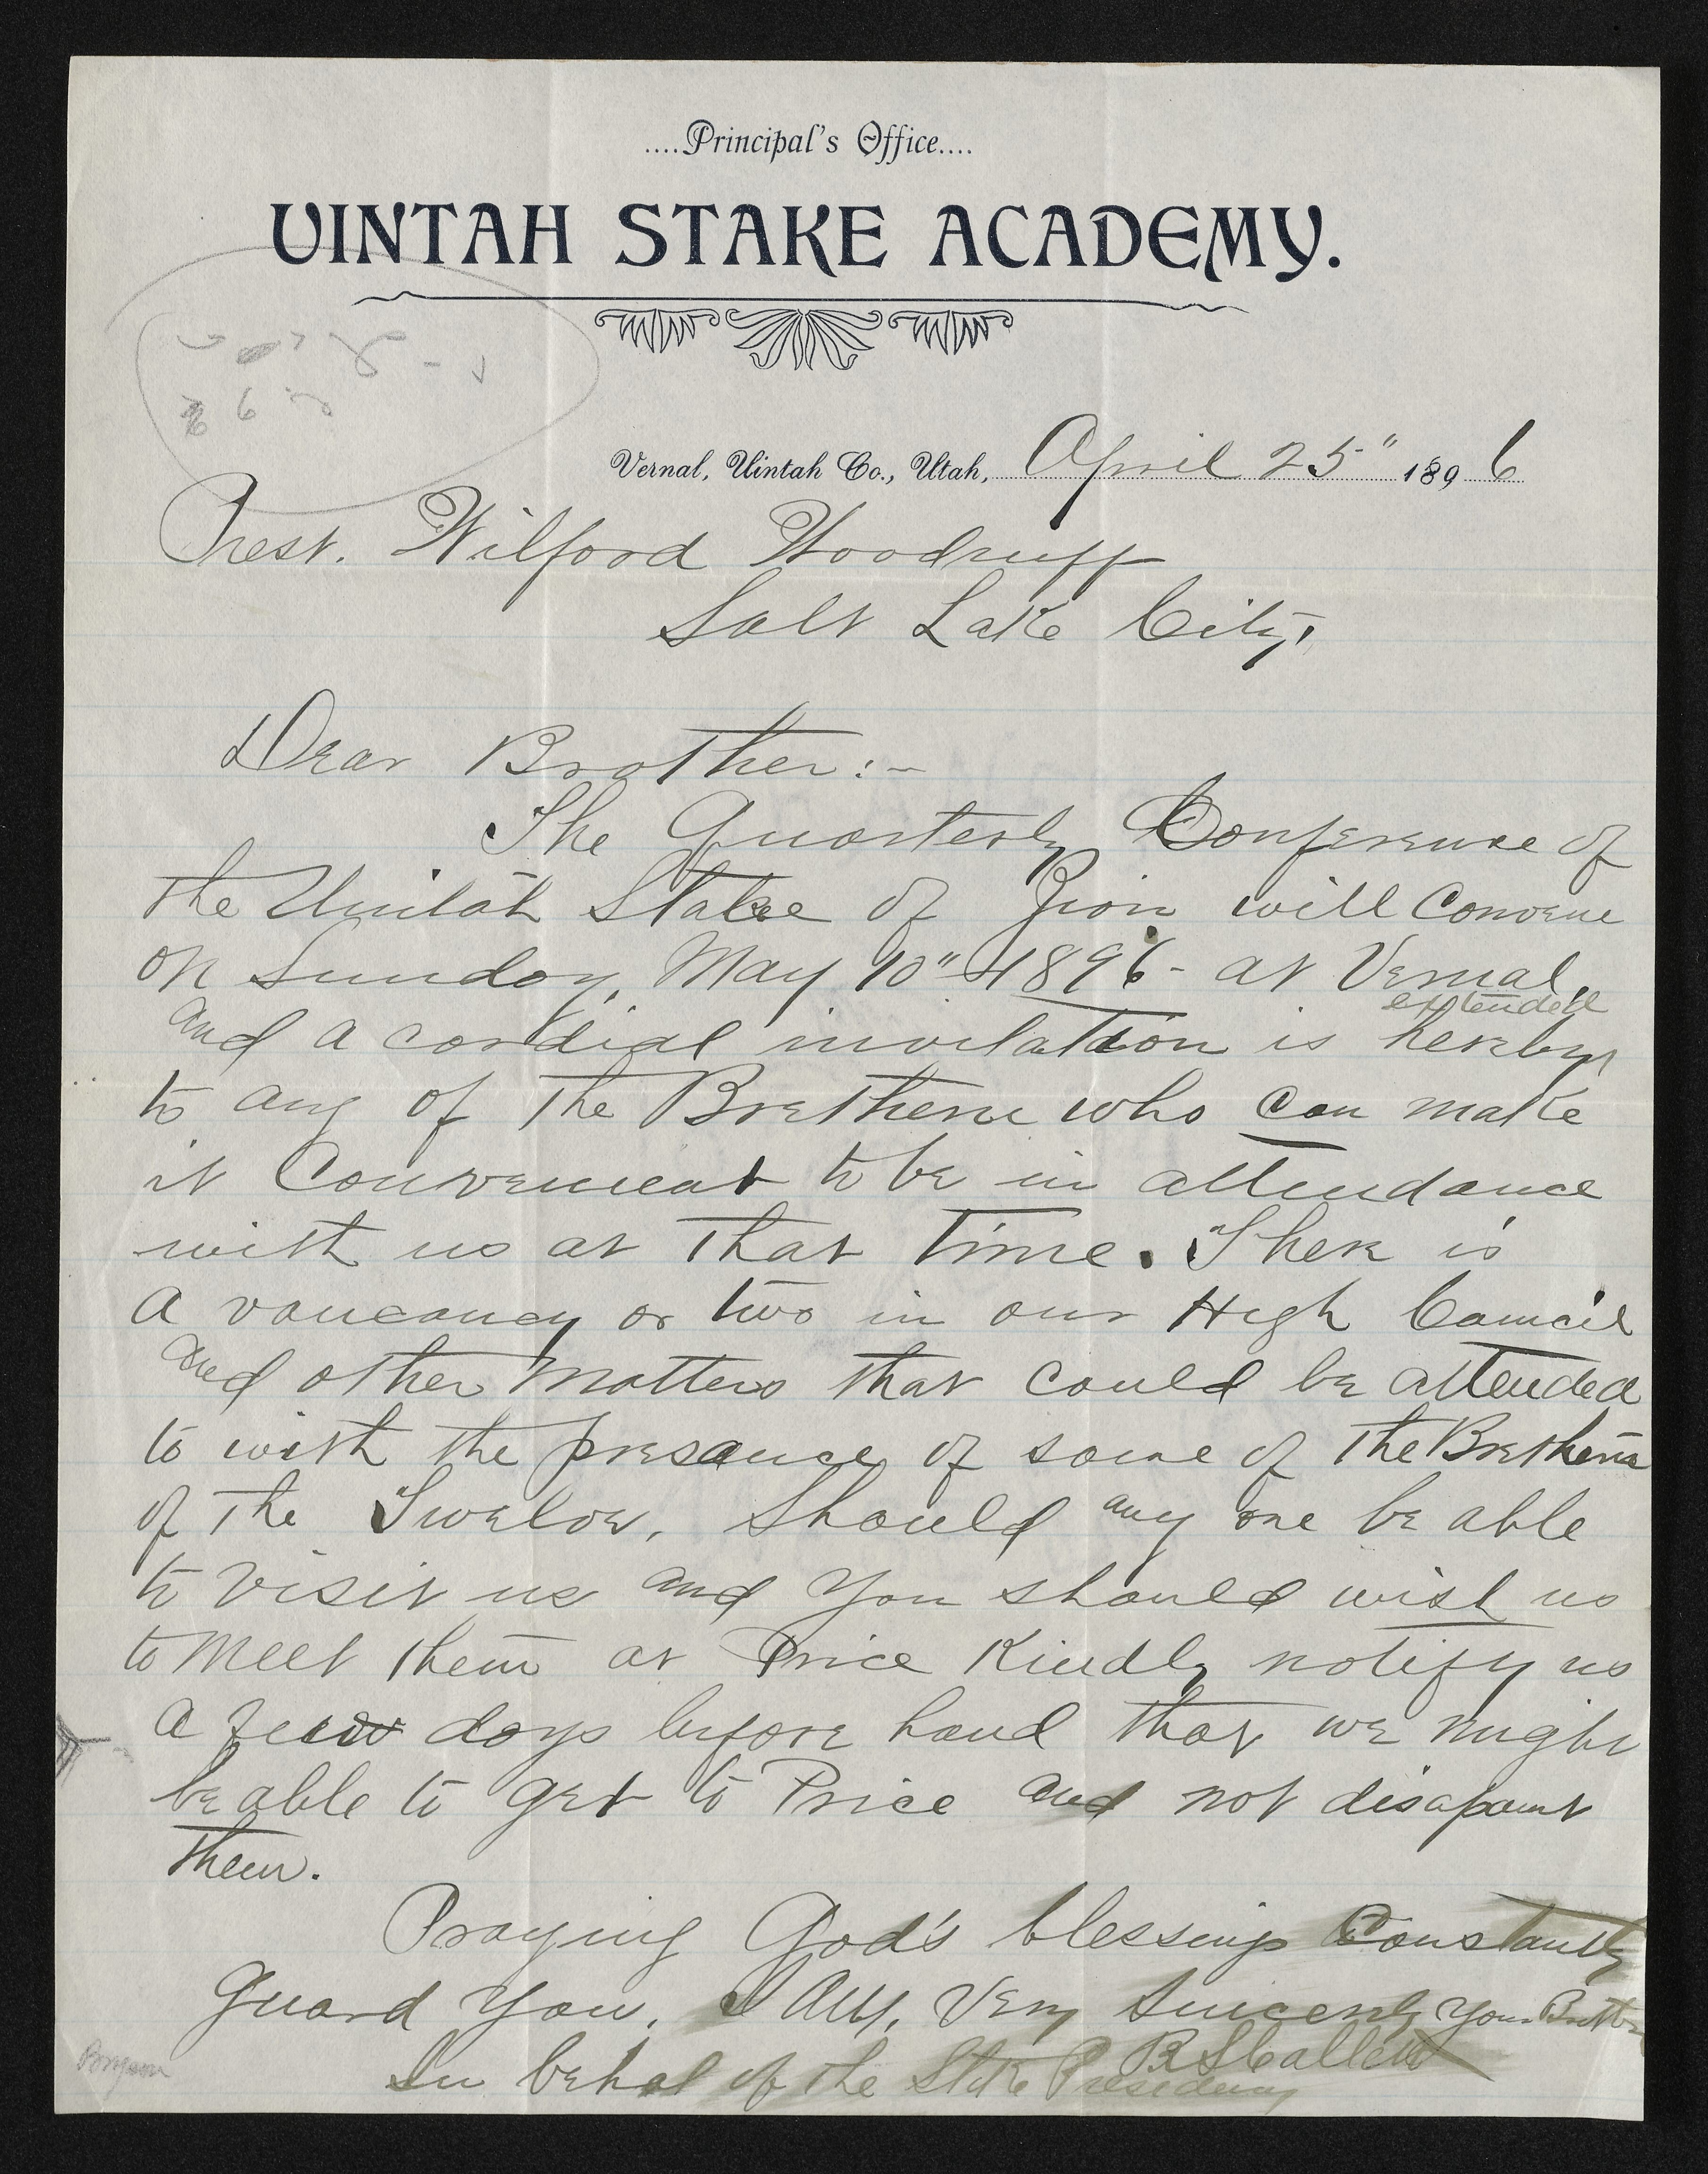 ....Principal's Office....
UINTAH STAKE ACADEMY.
Vernal, Uintah Co., Utah, April 25" 1896
Prest. Wilford Woodruff
Salt Lake City,
Dear Brother:-
The Quarterly Conference of
the Unitah Stake of Zion will convene
on Sunday, May 10" 1896- at Vernal,
extended
and a cordial invitation is hereby
to any of the Bretheren who can make
it Convenient to be in attendance
with us at that time. There is
a vancancy or two in our High Council
and other matters that could be attended
to with the presance of some of the Bretheren
of the Twelve. Should any one be able
to visit us and you should wish us
to meet them at Price Kindly notify us
a few days before hand that we might
be able to get to Price and not disapoint
them.
Praying God's blessings Constantly
guard you, I Am, Very Sincerely your Brother
R S Collett
In behal of the Stake Presidency